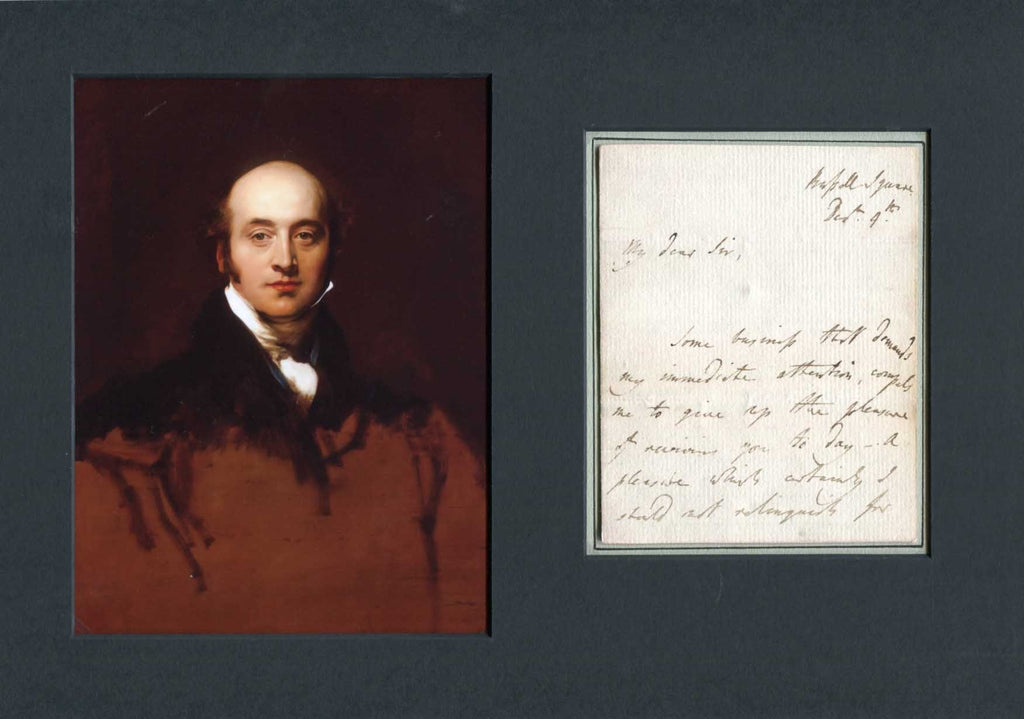 Russell Square
Dec.r 9.th
My dear Sir,
Some business that demands
my immediate attention, compels
me to give up the pleasure
of receiving you to day – A
pleasure which certainly I
should not relinquish for